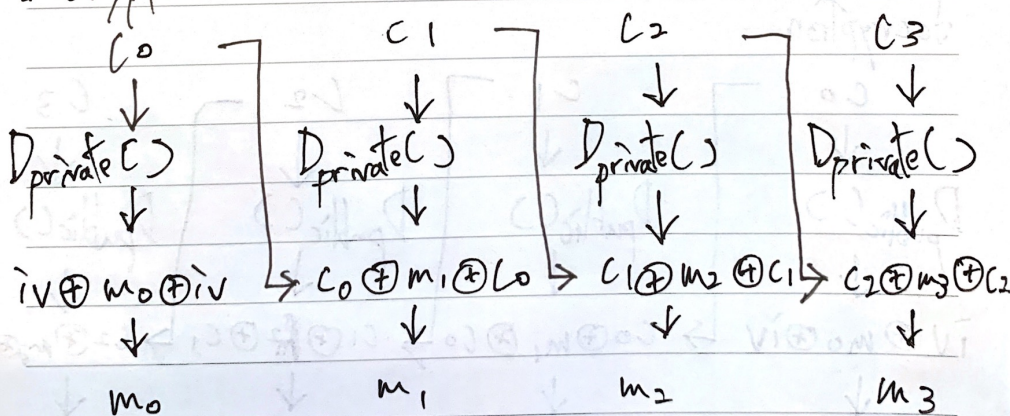 C0 C1 C2 C3
Dprivate() Dprivate() Dprivate() Dprivate()
iv⊕m0⊕iv C0⊕m1⊕C0 C1⊕m2⊕C1 C2⊕m3⊕C2
m0 m1 m2 m3